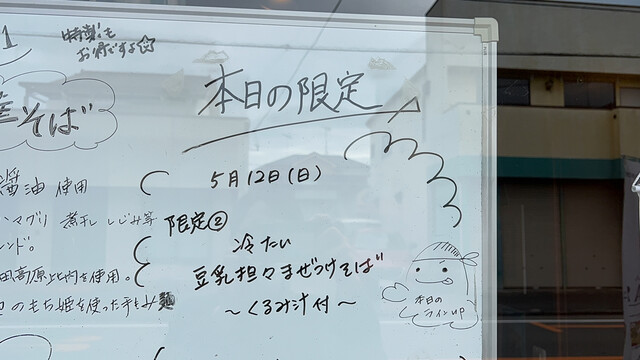 特製も
お得ですよ☆
そば
醤油使用
マグリ 煮干し しじみ等
ンド。
田高原比内を使用。
のもち姫を使った手もみ麺
本日の限定
5月12日(日)
限定②
冷たい
豆乳担々まぜつけそば
～くるみ汁付～
本日の
ラインup